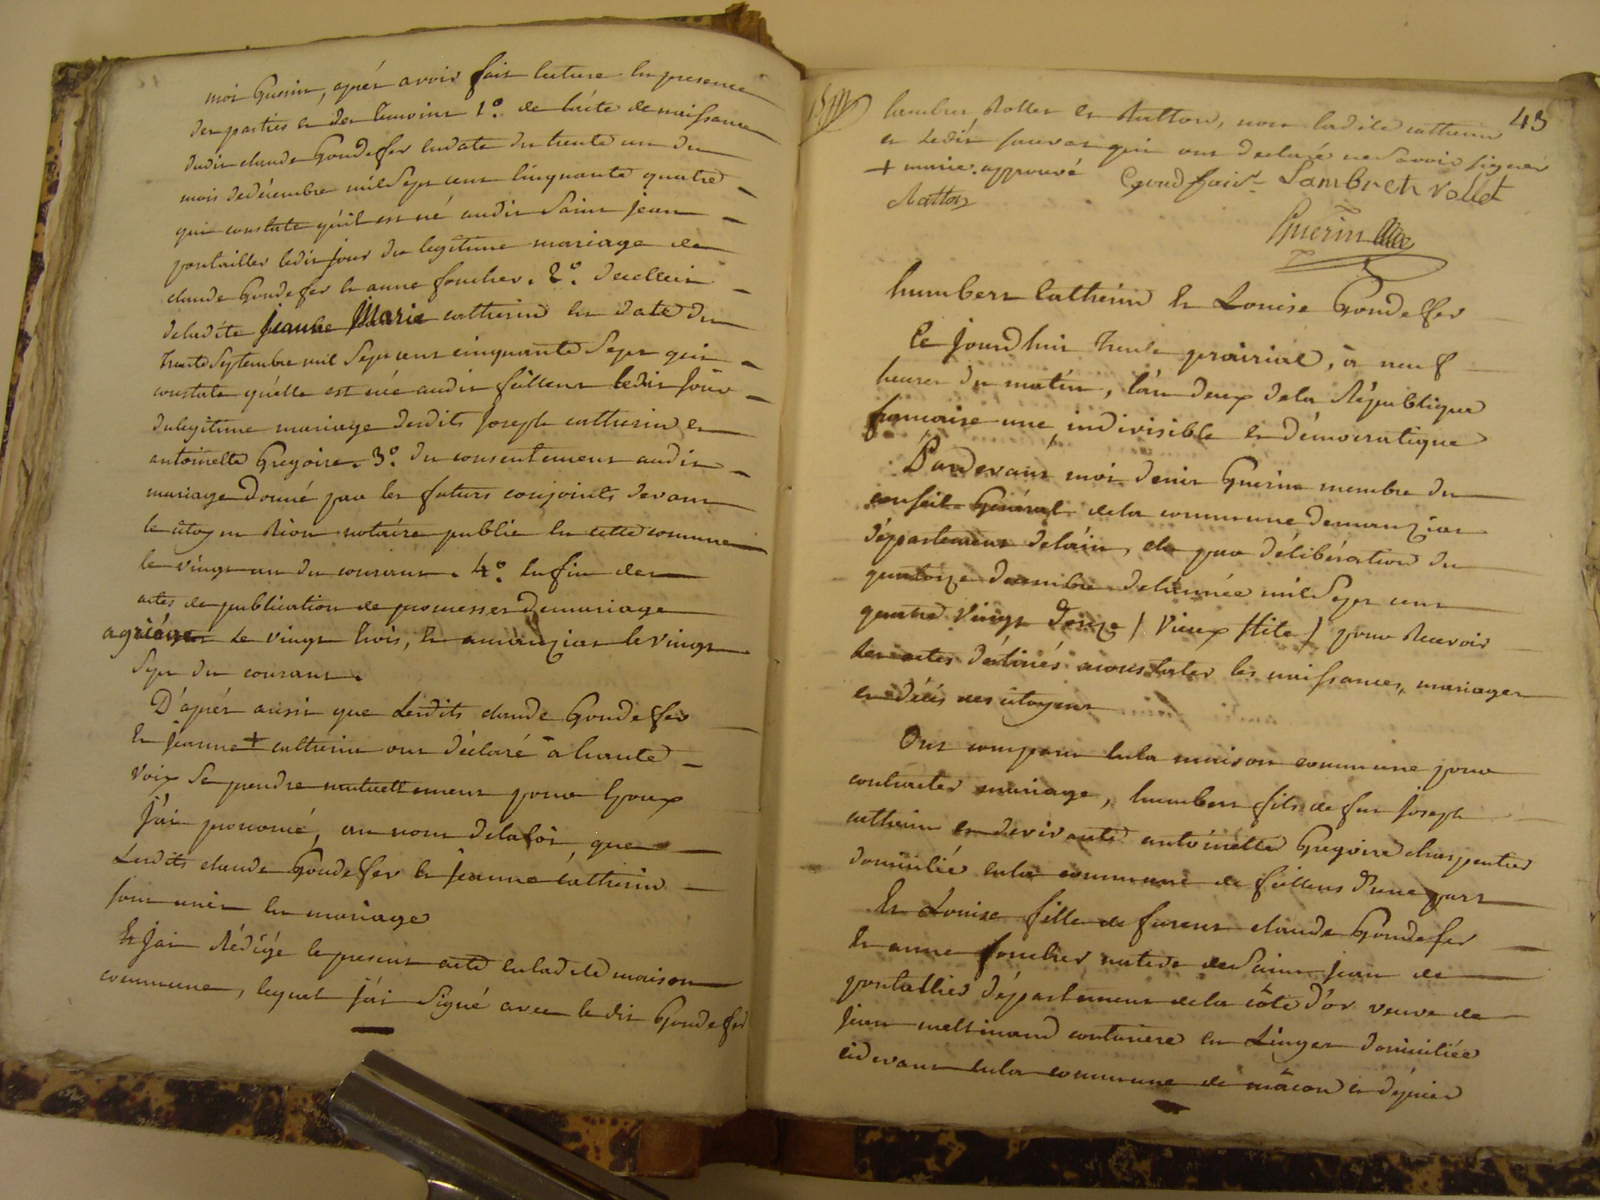 moi Guerin, aprés avoir fait lecture en presence
des parties et des temoins 1.º de lacte de naissance
dudit claude Gondefer endate du trente un du
mois dedécembre mil Sept cent cinquante quatre
qui constate qu'il est né audit Saint jean
pontailler ledit jour du legitime mariage de
claude Gondefer et anne foucher. 2.º decelui
deladite jeanne Marie catherin en date du
trente Septembre mil Sept cent cinquante Sept qui
constate qu'elle est née audit feillens ledit jour
dulegitime mariage desdits joseph catherin et
antoinette Gregoire. 3.º du consentement audit
mariage donné par les futurs conjoints devant
le citoyen notaire public en cette commune
le vingt un du courant. 4.º Enfin des
actes de publication de promesses demariage
le vingt trois, et amanziat le vingt
Sept du courant.
D'aprés aussi que lesdits claude Gondefer
et jeanne + catherin ont déclaré à haute
voix Se prendre mutuellement pour Epoux
J'ai prononcé, au nom delaloi que
Lesdits claude Gondefer et jeanne catherin
sont unis en mariage
Et jai Rédigé le present acte enladite maison
commune, lequel j'ai Signé avec ledit Gondefer
43
Lambret Vollet et Natton, non ladite catherin
et ledit qui ont declaré ne Savoir Signer
+ marie. approuvé Gondfair Lambret vollet
Natton
Guerin
humbert Catherin et Louise Gondeffer
Ce jourdhui trente prairial, à neuf
heures du matin, l'an deux dela République
francaise une, indivisible et démocratique
Pardevant moi denis Guerin membre du
conseil Général dela commune demanziat
département delain, élu par délibération du
quatorze decembre delannée mil Sept cent
quatre vingt douze / vieux stile / pour Recevoir
les actes destinés aconstater les naissances, mariages
et décés des citoyens
Ont comparu enla maison commune pour
contracter mariage, humbert fils de feu joseph
catherin et devivante antoinette Gregoire charpentier
domicilié enla commune de feillens d'une part
Et Louise fille de furent claude Gondefer
et anne foucher native de Saint jean de
pontallier département dela côte d'or veuve de
jean couturiere en Linges domiciliée
cidevant enla commune de mâcon et dépuis